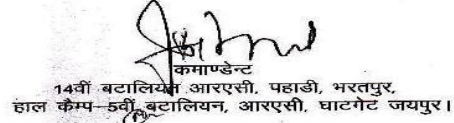 कमाण्डेन्ट
14वीं बटालियन आरएसी, पहाडी, भरतपुर,
हाल कैम्प 5वीं बटालियन, आरएसी, घाटगेट जयपुर।